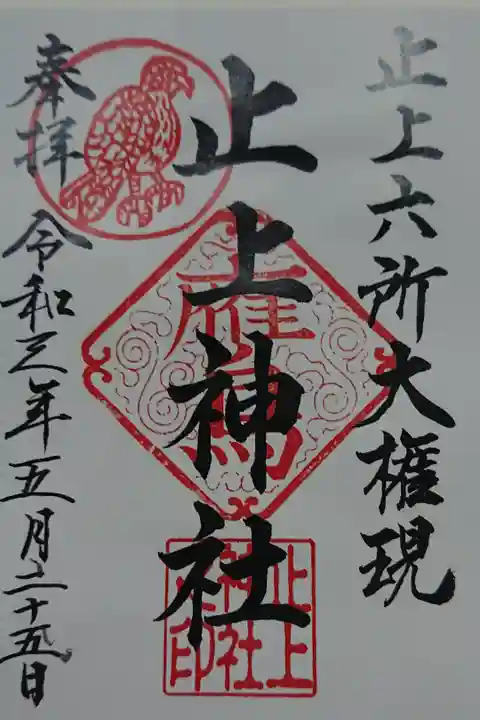 止上六所大権現
止上神社
鷹
止上
神社
之印
奉拝
令和三年五月二十五日